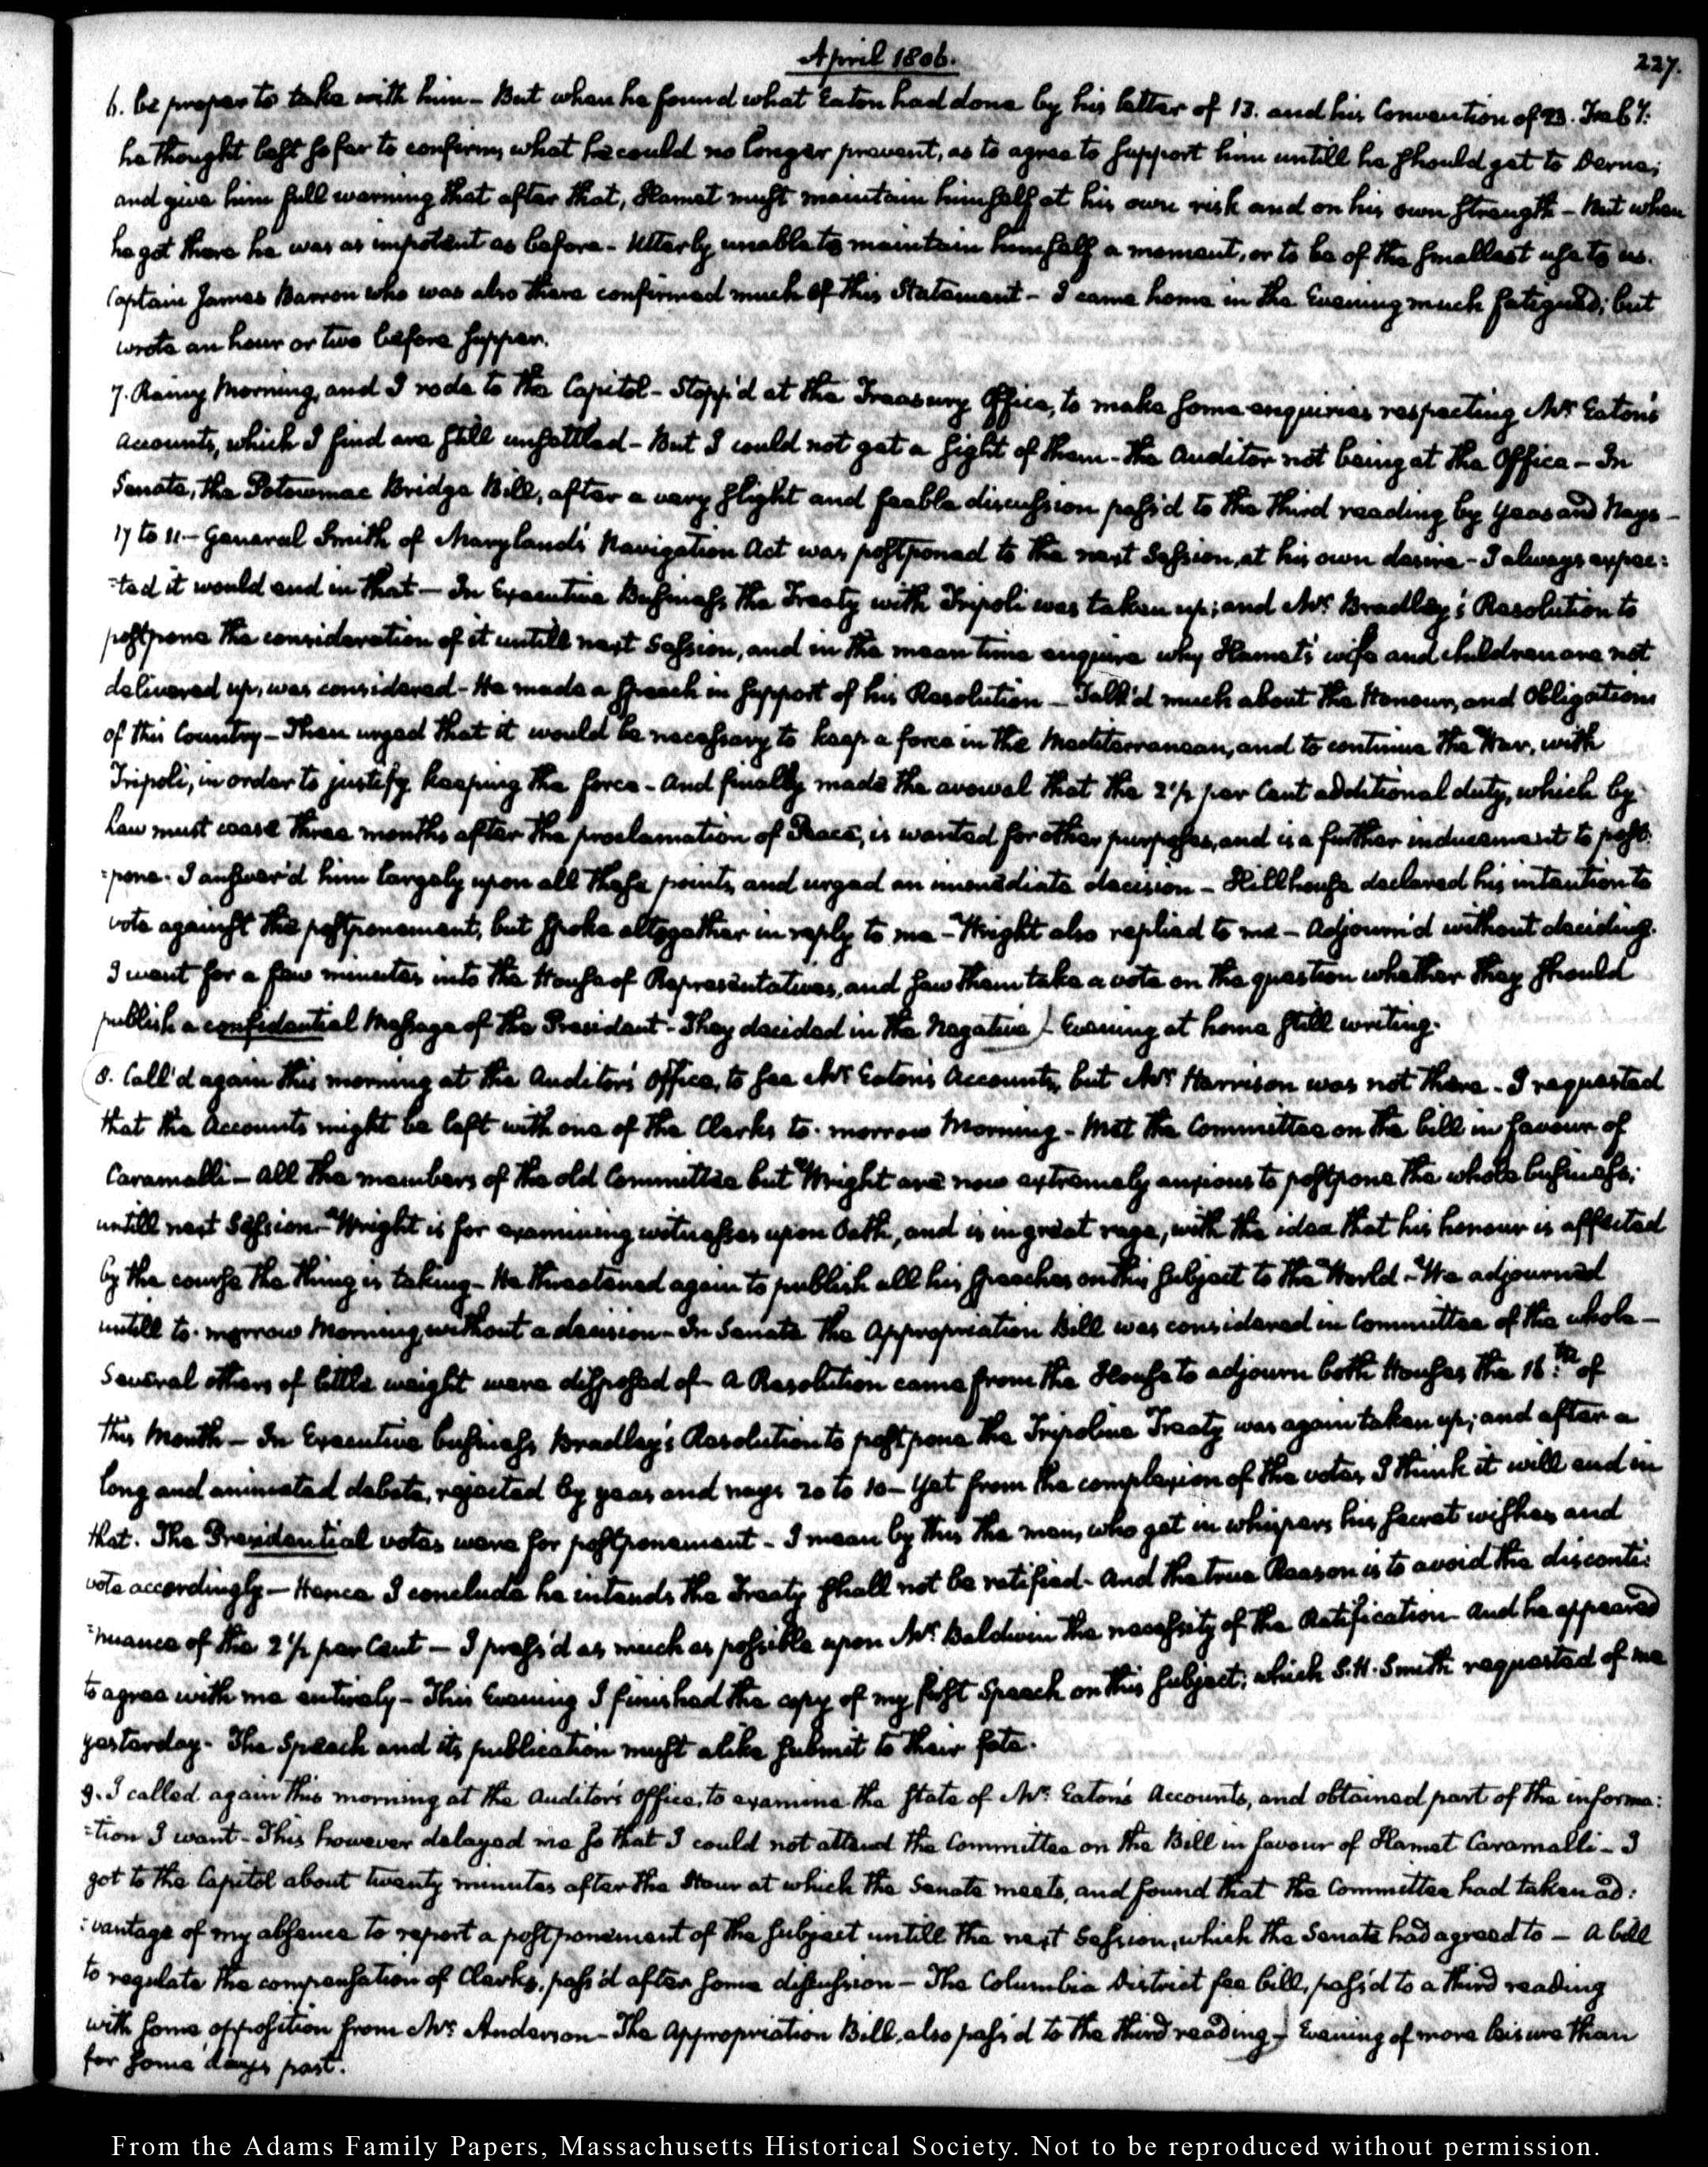 April 1806.
227.
6. be proper to take with him – But when he found what Eaton had done by his letter of 13. and his Convention of 23. Feby:
he thought best so far to confirm, what he could no longer prevent, as to agree to support him untill he should get to Derne;
and give him full warning that after that, Hamet must maintain himself at his own risk and on his own strength – But when
he got there he was as impotent as before – Utterly unable to maintain himself a moment, or to be of the smallest use to us.
Captain James Barron who was also there confirmed much of this Statement – I came home in the Evening much fatigued; but
wrote an hour or two before supper.
7. Rainy Morning, and I rode to the Capitol – Stopp'd at the Treasury Office, to make some enquiries respecting Mr Eaton's
accounts, which I find are still unsettled – But I could not get a sight of them – the Auditor not being at the Office – In
Senate, the Potowmac Bridge Bill, after a very slight and feeble discussion pass'd to the third reading by yeas and Nays –
17 to 11 – General Smith of Maryland's Navigation Act was postponed to the next Session, at his own desire – I always expec:
:ted it would end in that – In Executive Business the Treaty with Tripoli was taken up; and Mr Bradley's Resolution to
postpone the consideration of it untill next Session, and in the mean time enquire why Hamet's wife and children are not
delivered up, was considered – He made a speech in support of his Resolution – Talk'd much about the Honour, and Obligations
of this Country – Then urged that it would be necessary to keep a force in the Mediterranean, and to continue the War, with
Tripoli, in order to justify keeping the force – And finally made the avowal that the 2½ per Cent additional duty, which by
Law must cease three months after the proclamation of Peace, is wanted for other purposes, and is a further inducement to post:
:pone. I answer'd him largely upon all these points, and urged an immediate decision – Hillhouse declared his intention to
vote against the postponement, but spoke altogether in reply to me – Wright also replied to me – Adjourn'd without deciding.
I went for a few minutes into the House of Representatives, and saw them take a vote on the question whether they should
publish a confidential Message of the President – They decided in the Negative) – Evening at home still writing.
8. Call'd again this morning at the Auditor's Office, to see Mr Eaton's Accounts, but Mr Harrison was not there – I requested
that the Accounts might be left with one of the Clerks to-morrow Morning – Met the Committee on the bill in favour of
Caramalli – All the members of the old Committee but Wright are now extremely anxious to postpone the whole business;
untill next Session – Wright is for examining witnesses upon Oath, and is in great rage, with the idea that his honour is affected
by the course the thing is taking – He threatened again to publish all his speeches on this subject to the World – We adjourned
untill to-morrow Morning without a decision – In Senate the Appropriation Bill was considered in Committee of the whole –
Several others of little weight were disposed of – A Resolution came from the House to adjourn both Houses the 18th of
this Month – In Executive business, Bradley's Resolution to postpone the Tripoline Treaty was again taken up; and after a
long and animated debate, rejected by yeas and nays 20 to 10 – Yet from the complexion of the votes I think it will end in
that. The Presidential votes were for postponement – I mean by this the men, who get in whispers his secret wishes, and
vote accordingly – Hence I conclude he intends the Treaty shall not be ratified – And the true Reason is to avoid the disconti:
:nuance of the 2½ per Cent – I press'd as much as possible upon Mr Baldwin the necessity of the Ratification – And he appeared
to agree with me entirely – This Evening I finished the copy of my first Speech on this subject; which S. H. Smith requested of me
yesterday – The Speech and its publication must alike submit to their fate.
9. I called again this morning at the Auditor's Office, to examine the state of Mr. Eaton's Accounts, and obtained part of the informa:
:tion I want – This however delayed me so that I could not attend the Committee on the Bill in favour of Hamet Caramalli – I
got to the Capitol about twenty minutes after the Hour at which the Senate meets, and found that the Committee had taken ad:
:vantage of my absence to report a postponement of the subject untill the next Session, which the Senate had agreed to – A bill
to regulate the compensation of Clerks, pass'd after some discussion – The Columbia District fee bill, pass'd to a third reading
with some opposition from Mr Anderson – The Appropriation Bill, also pass'd to the third reading) – Evening of more leisure than
for some days past.
From the Adams Family Papers, Massachusetts Historical Society. Not to be reproduced without permission.